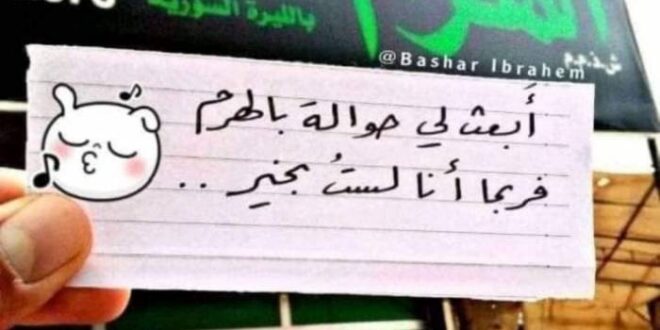 بالليرة السورية
الهرم
@Bashar Ibrahem
أَبعث لي حوالة بالهرم
فربما أنا لستُ بخير ..